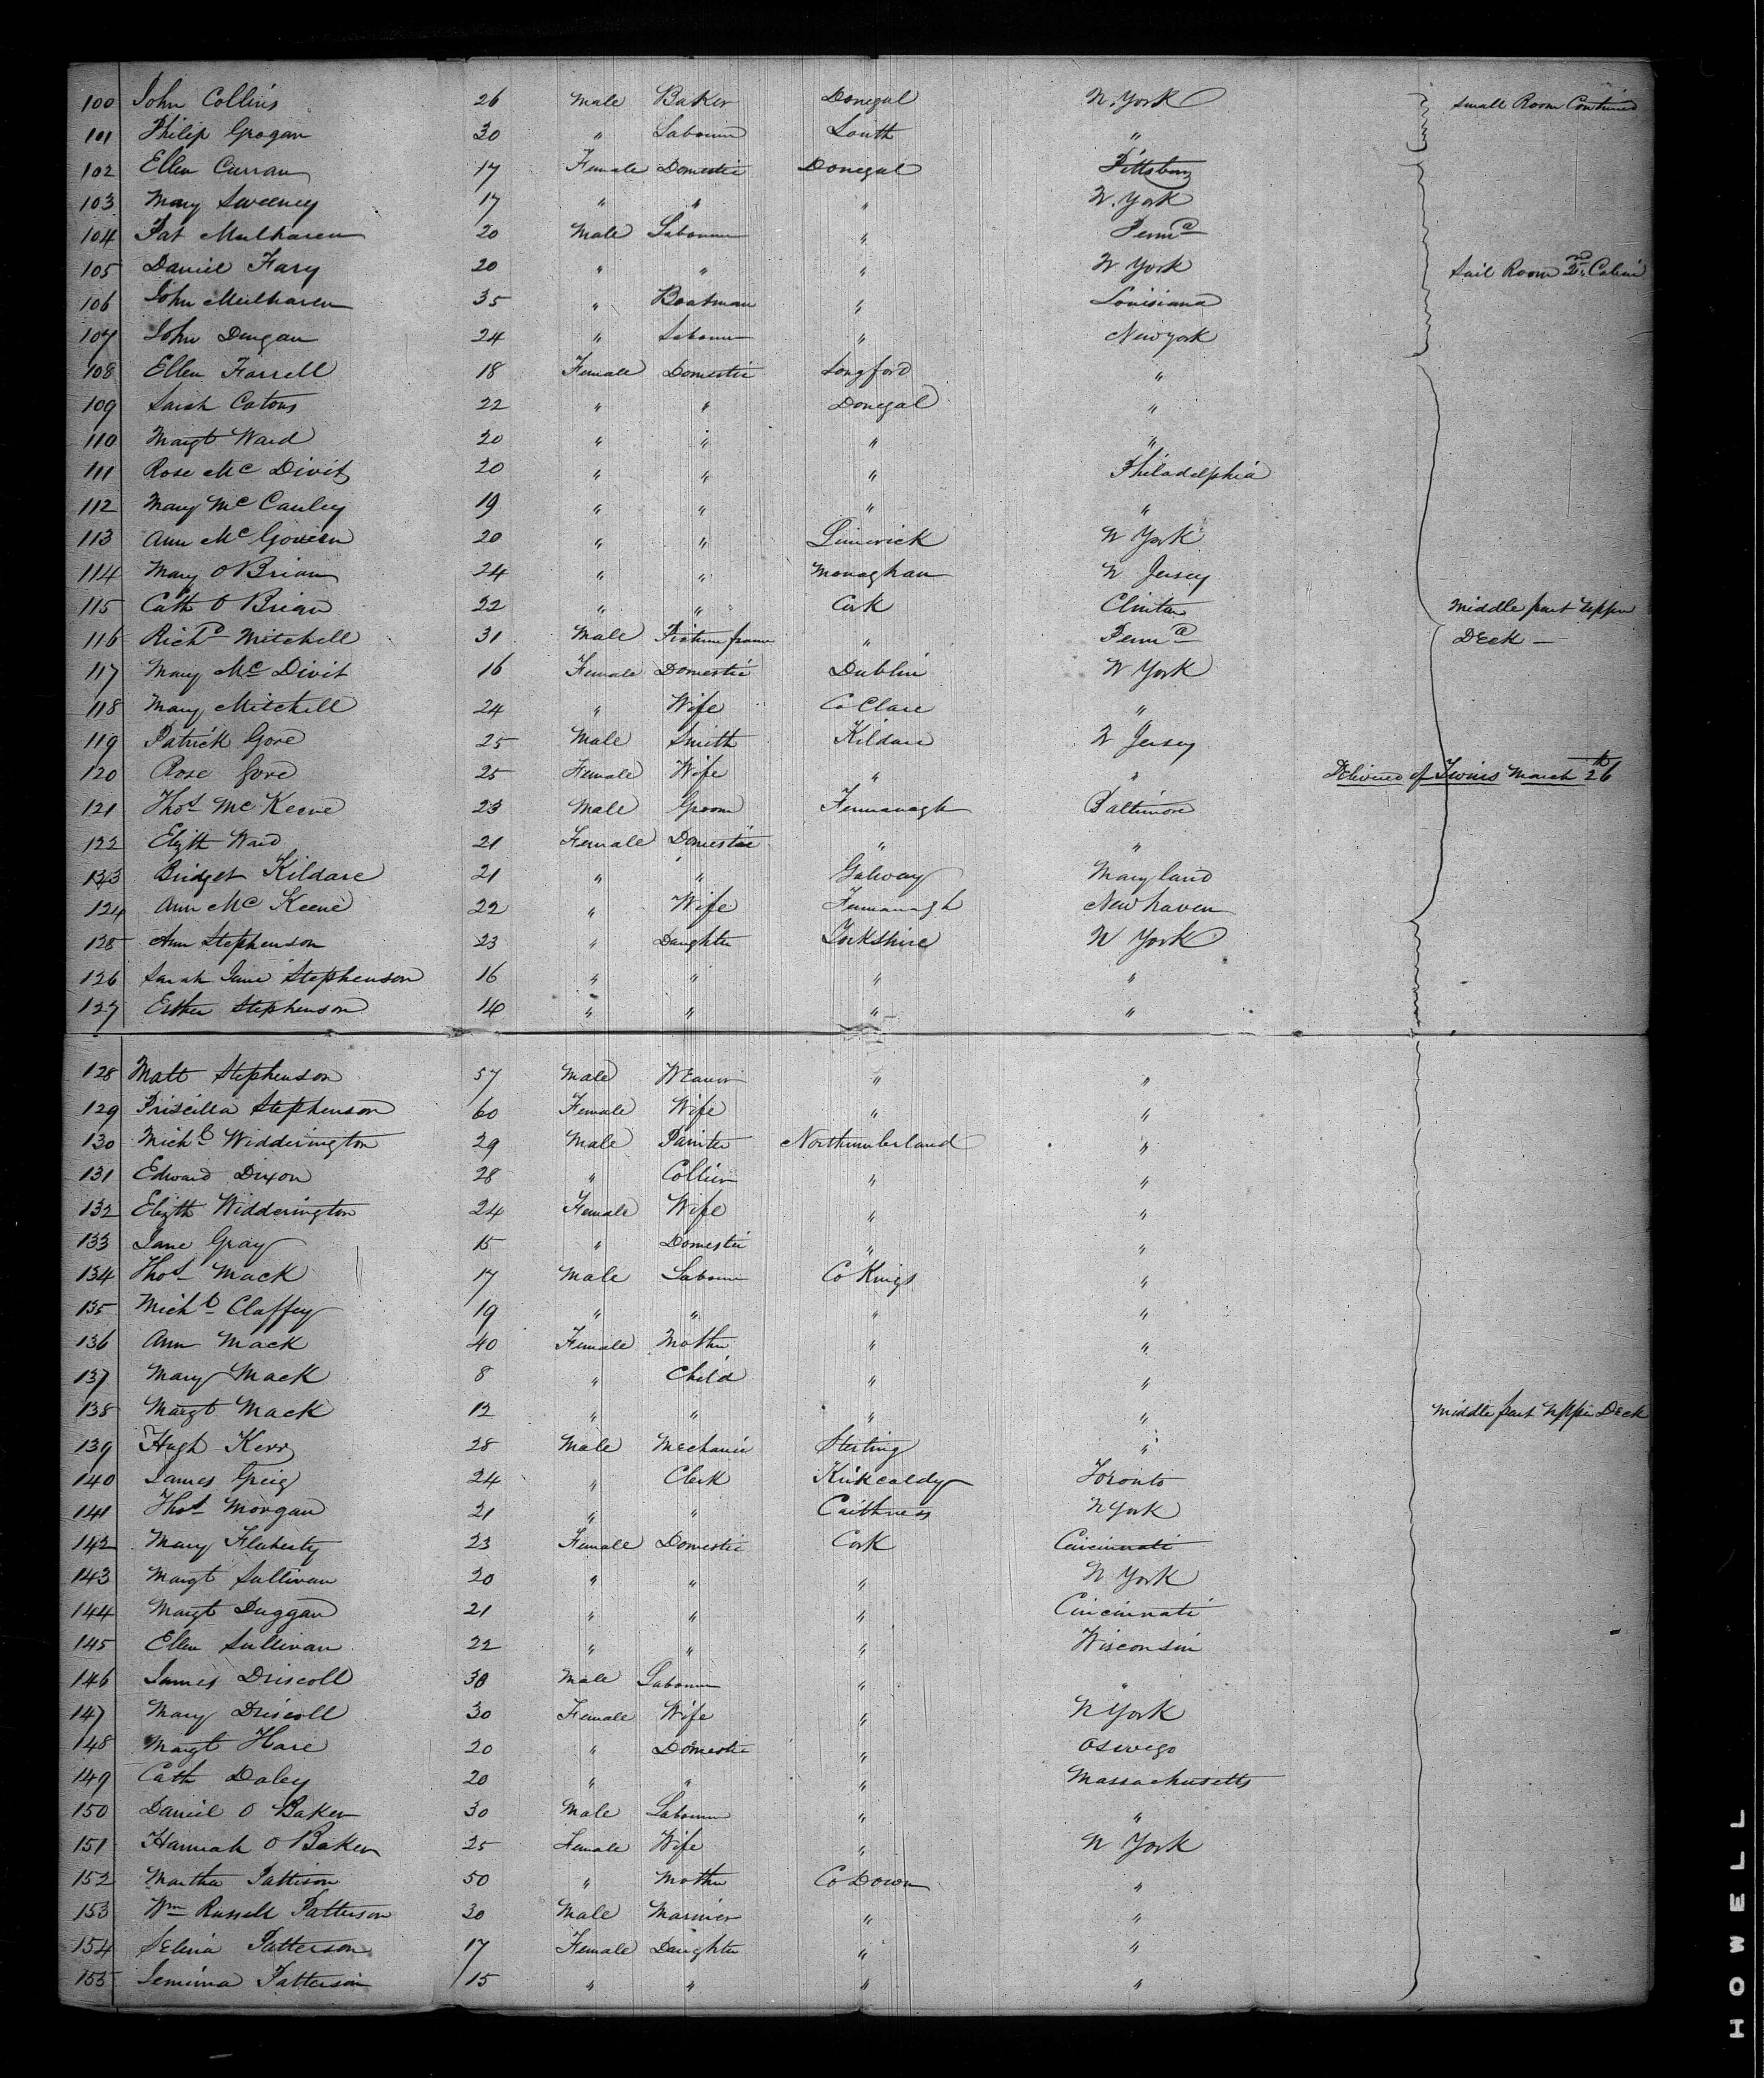 100 John Collins 26 Male Baker Donegal N. York Small Room Continued
101 Philip Grogan 30 " Labourer Louth "
102 Ellen Curran 17 Female Domestic Donegal Pittsburg
103 Mary Sweeney 17 " " " N. York
104 Pat Mulharen 20 Male Labourer " Penna
105 Daniel Fary 20 " " " N. York Sail Room 2nd Cabin
106 John Mulharen 35 " Boatman " Louisiana
107 John Dugan 24 " Labourer " New york
108 Ellen Farrell 18 Female Domestic Longford "
109 Sarah Catons 22 " " Donegal "
110 Margt Ward 20 " " " "
111 Rose Mc Divit 20 " " " Philadelphia
112 Mary Mc Cauley 19 " " " "
113 Ann Mc Govern 20 " " Limerick N York
114 Mary O Brian 24 " " Monaghan N Jersey
115 Cath O Brian 22 " " Cork Clinton Middle part Upper
116 Richd Mitchell 31 Male Picture frame " Penna Deck —
117 Mary Mc Divit 16 Female Domestic Dublin N York
118 Mary Mitchell 24 " Wife Co Clare "
119 Patrick Gore 25 Male Smith Kildare N Jersey
120 Rose Gore 25 Female Wife " " Delivered of Twins March 26th
121 Thos Mc Keene 23 Male Groom Fermanagh Baltimore
122 Elizth Ward 21 Female Domestic " "
123 Bridget Kildare 21 " " Galway Maryland
124 Ann Mc Keene 22 " Wife Fermanagh New haven
125 Ann Stephenson 23 " Daughter Yorkshire N York
126 Sarah Jane Stephenson 16 " " " "
127 Esther Stephenson 14 " " " "
128 Matt Stephenson 57 Male Weaver " "
129 Priscilla Stephenson 60 Female Wife " "
130 Michl Widderington 29 Male Painter Northumberland "
131 Edward Dixon 28 " Collier " "
132 Elizth Widderington 24 Female Wife " "
133 Jane Gray 15 " Domestic " "
134 Thos Mack 17 Male Labourer Co Kings "
135 Michl Claffey 19 " " " "
136 Ann Mack 40 Female Mother " "
137 Mary Mack 8 " Child " "
138 Margt Mack 12 " " " " Middle part Upper Deck
139 Hugh Kerr 28 Male Mechanic Sterling "
140 James Greig 24 " Clerk Kirkcaldy Toronto
141 Thos Morgan 21 " " Caithness N York
142 Mary Flaherty 23 Female Domestic Cork Cincinnati
143 Margt Sullivan 20 " " " N York
144 Margt Duggan 21 " " " Cincinnati
145 Ellen Sullivan 22 " " " Wisconsin
146 James Driscoll 30 Male Labourer " "
147 Mary Driscoll 30 Female Wife " N York
148 Margt Hare 20 " Domestic " Oswego
149 Cath Daley 20 " " " Massachusetts
150 Daniel O Baker 30 Male Labourer " "
151 Hannah O Baker 25 Female Wife " N York
152 Martha Pattison 50 " Mother Co Down "
153 Wm Russell Patterson 30 Male Mariner " "
154 Selina Patterson 17 Female Daughter " "
155 Jemima Patterson 15 " " " "
HOWELL